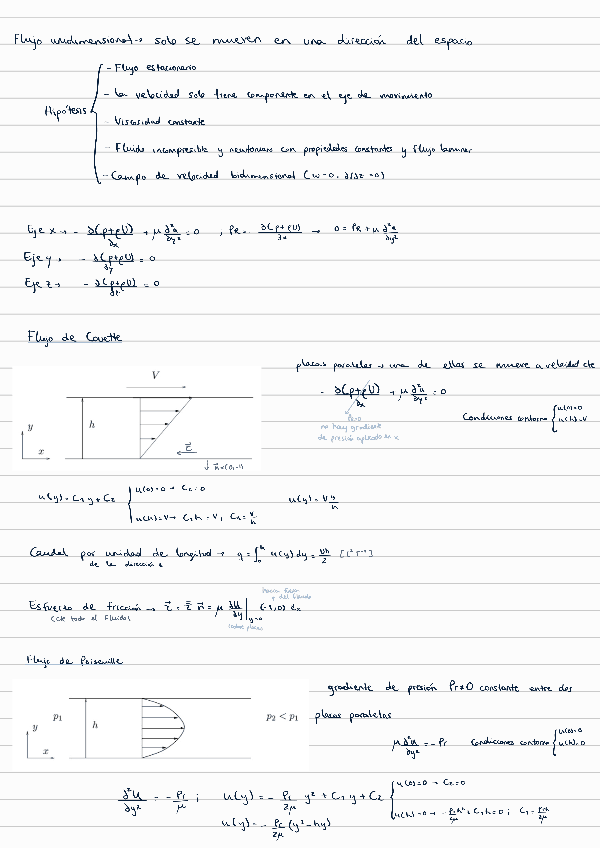 Flujo unidimensional → solo se mueven en una dirección del espacio
Hipótesis
- Flujo estacionario
- La velocidad solo tiene componente en el eje de movimiento
- Viscosidad constante
- Fluido incompresible y newtoniano con propiedades constantes y flujo laminar
- Campo de velocidad bidimensional (w=0, ∂/∂z=0)
Eje x → - ∂(p+ρU)/∂x + μ ∂²u/∂y² = 0 , Pl = - ∂(p+ρU)/∂x → 0 = Pl + μ ∂²u/∂y²
Eje y → - ∂(p+ρU)/∂y = 0
Eje z → - ∂(p+ρU)/∂z = 0
Flujo de Couette
placas paralelas → una de ellas se mueve a velocidad cte
- ∂(p+ρU)/∂x + μ ∂²u/∂y² = 0
Pl=0
no hay gradiente
de presión aplicado en x
Condiciones contorno { u(0)=0
u(h)=V
V
h
y
x
u(y) = C₁y + C₂ { u(0)=0 → C₂=0
u(h)=V → C₁h = V; C₁ = V/h
u(y) = V y/h
Caudal por unidad de longitud → q = ∫₀ʰ u(y) dy = Vh/2 [L² T⁻¹]
de la dirección z
Esfuerzo de fricción →
(de todo el fluido)
Flujo de Poiseuille
gradiente de presión Pl≠0 constante entre dos
placas paralelas
p₁
h
p₂ < p₁
y
x
μ ∂²u/∂y² = -Pl Condiciones contorno { u(0)=0
u(h)=0
∂²u/∂y² = - Pl/μ ; u(y) = - Pl/2μ y² + C₁y + C₂ { u(0)=0 → C₂=0
u(h)=0 → - Pl h²/2μ + C₁h = 0 ; C₁ = Pl h/2μ
u(y) = - Pl/2μ (y² - hy)